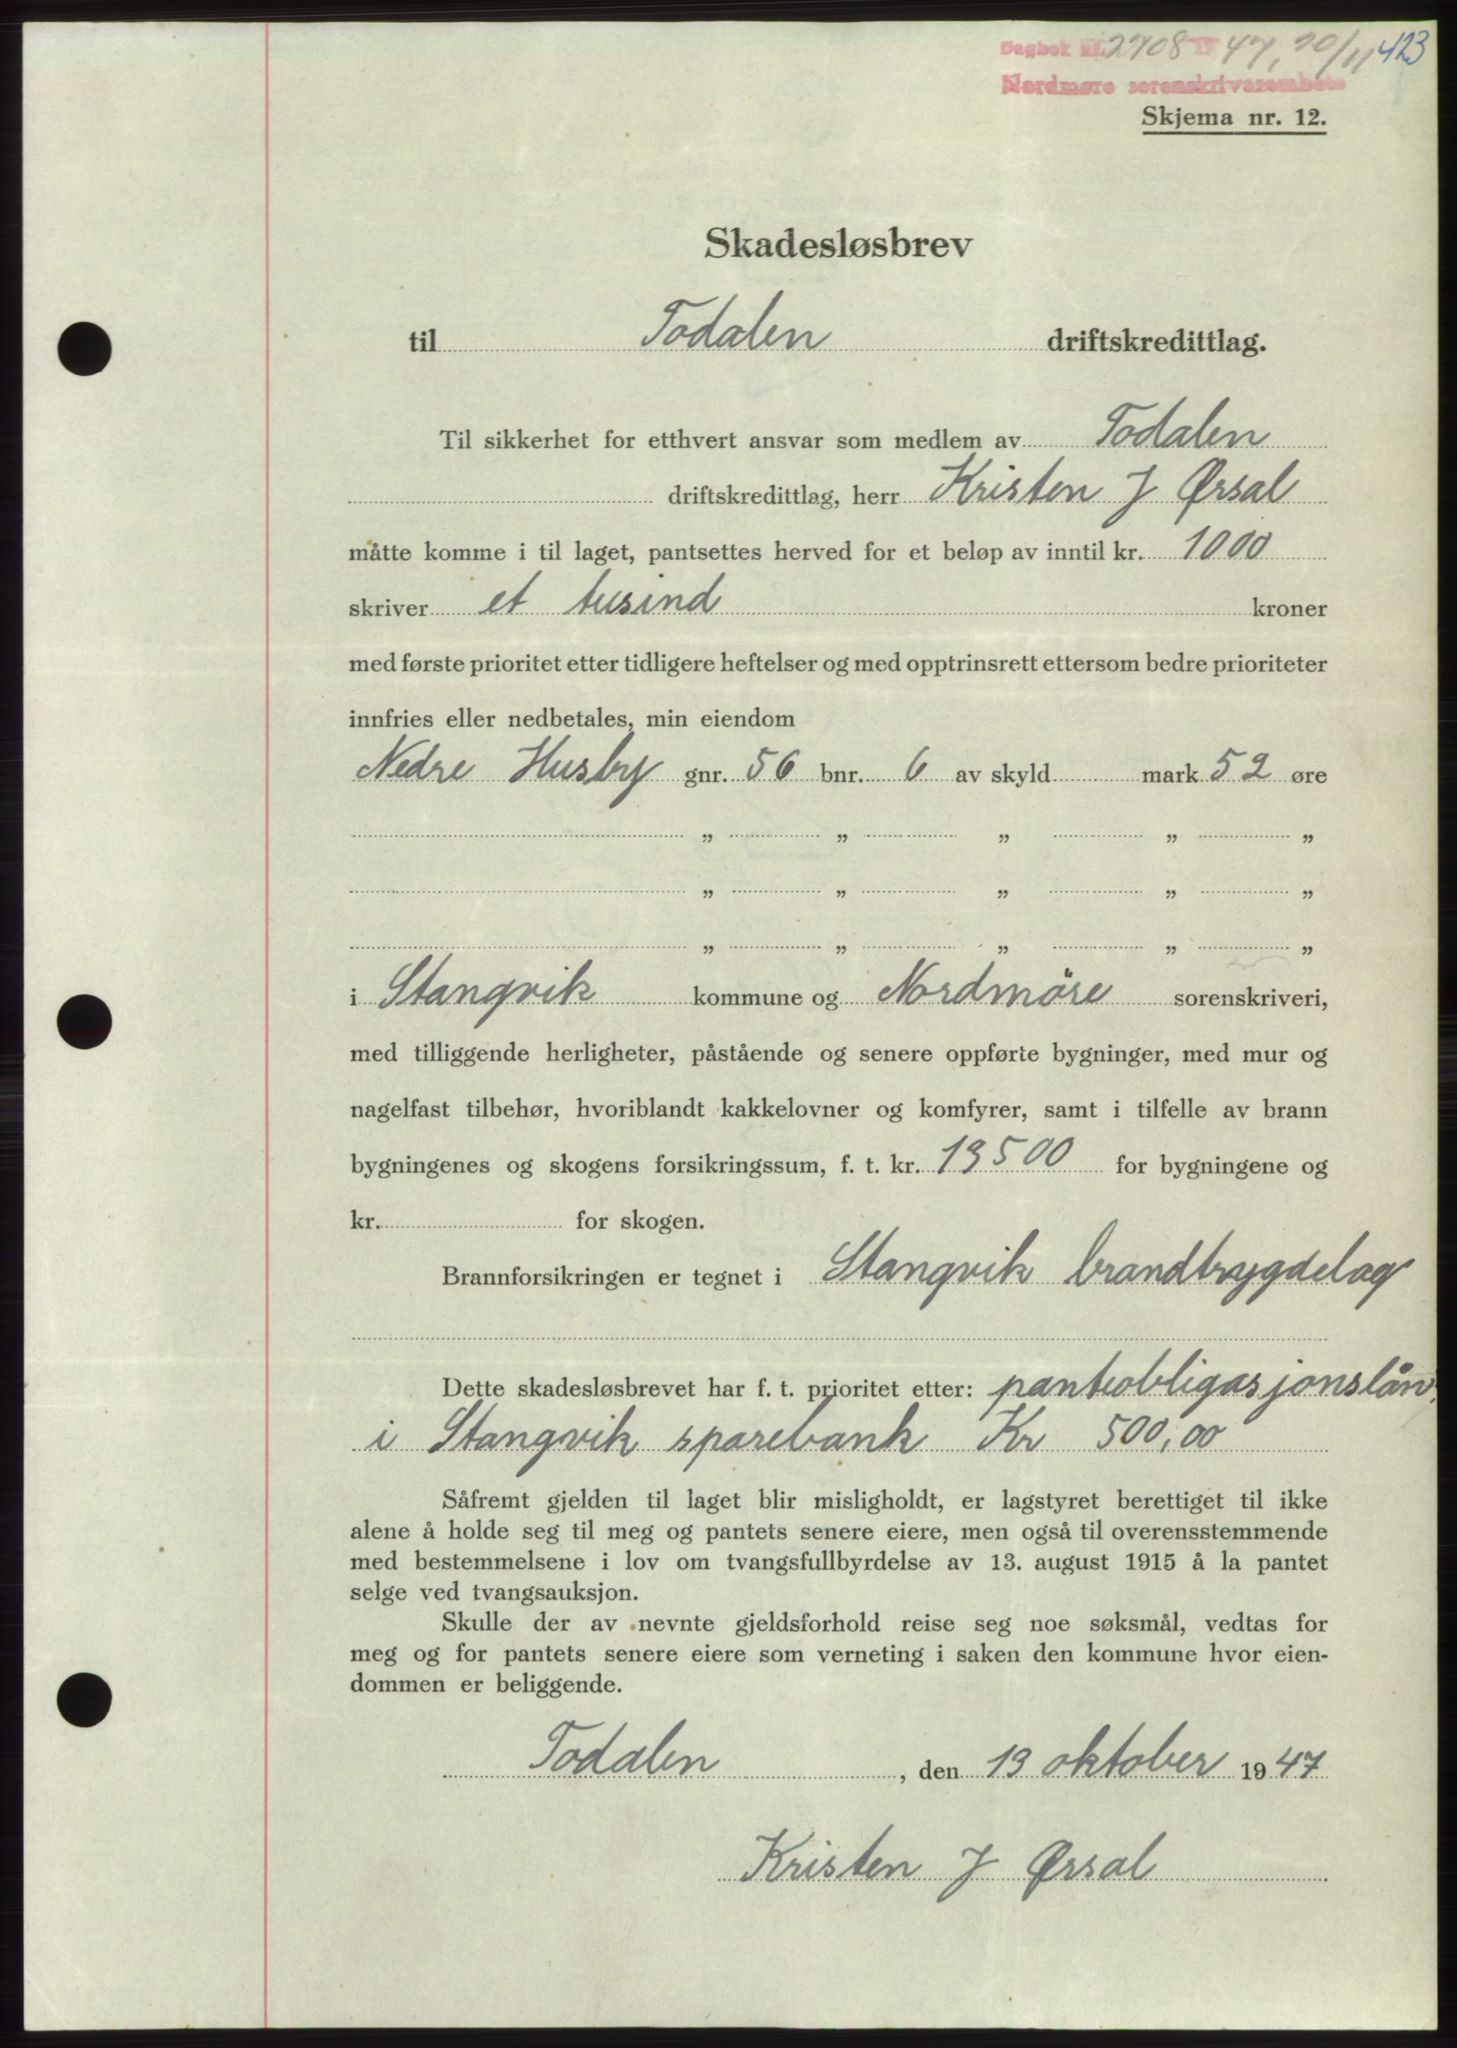 Dagbok nr. 2708 19 47, 20/11 423
Nordmøre sorenskriverembete
Skjema nr. 12.
Skadesløsbrev
til Todalen driftskredittlag.
Til sikkerhet for etthvert ansvar som medlem av Todalen
driftskredittlag, herr Kristen J Ørsal
måtte komme i til laget, pantsettes herved for et beløp av inntil kr. 1000
skriver et tusind kroner
med første prioritet etter tidligere heftelser og med opptrinsrett ettersom bedre prioriteter
innfries eller nedbetales, min eiendom
Nedre Husby gnr. 56 bnr. 6 av skyld mark 52 øre
„ „ „ „ „
„ „ „ „ „
„ „ „ „ „
i Stangvik kommune og Nordmöre sorenskriveri,
med tilliggende herligheter, påstående og senere oppførte bygninger, med mur og
nagelfast tilbehør, hvoriblandt kakkelovner og komfyrer, samt i tilfelle av brann
bygningenes og skogens forsikringssum, f. t. kr. 13500 for bygningene og
kr. for skogen.
Brannforsikringen er tegnet i Stangvik brandtrygdelag
Dette skadesløsbrevet har f. t. prioritet etter: panteobligasjonslån
i Stangvik sparebank Kr 500,00
Såfremt gjelden til laget blir misligholdt, er lagstyret berettiget til ikke
alene å holde seg til meg og pantets senere eiere, men også til overensstemmende
med bestemmelsene i lov om tvangsfullbyrdelse av 13. august 1915 å la pantet
selge ved tvangsauksjon.
Skulle der av nevnte gjeldsforhold reise seg noe søksmål, vedtas for
meg og for pantets senere eiere som verneting i saken den kommune hvor eien-
dommen er beliggende.
Todalen, den 13 oktober 1947
Kristen J Ørsal